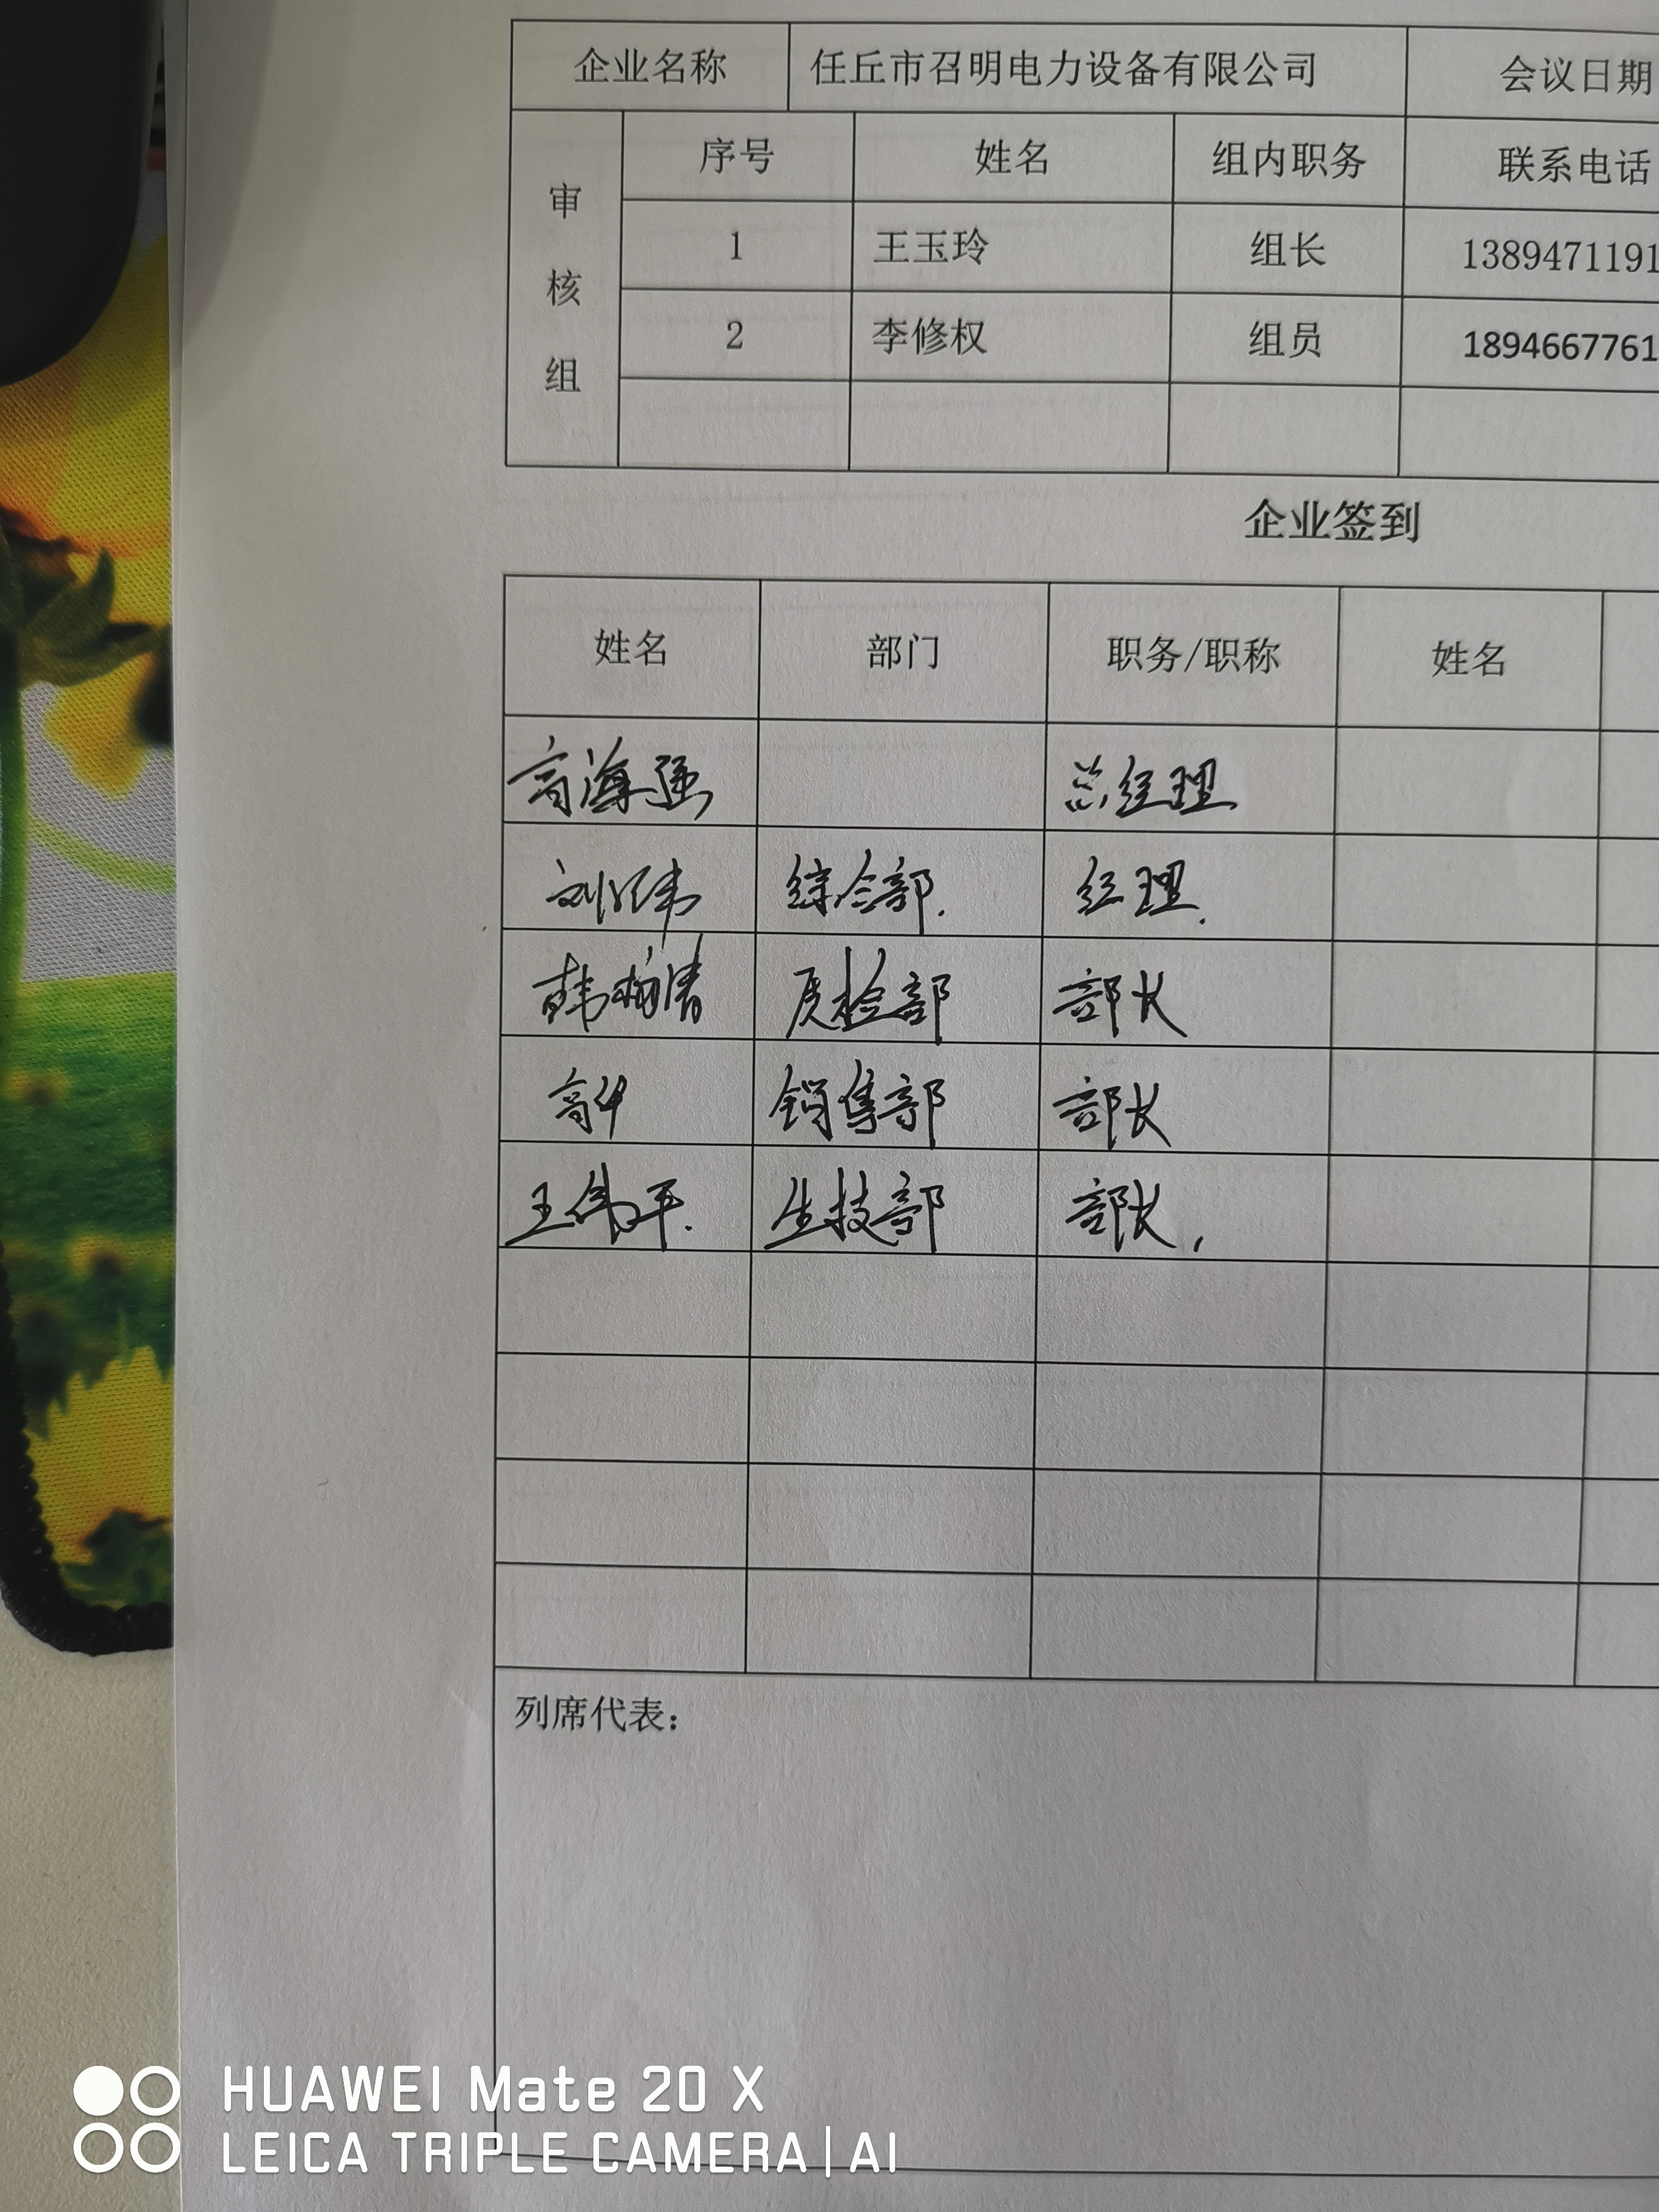 企业名称 任丘市召明电力设备有限公司 会议日期
审核组
序号 姓名 组内职务 联系电话
1 王玉玲 组长 1389471191
2 李修权 组员 1894667761
企业签到
姓名 部门 职务/职称 姓名
高海强 总经理
刘 综合部. 经理.
韩柏清 质检部 部长
高 销售部 部长
王伟平. 生技部 部长,
列席代表：
HUAWEI Mate 20 X
LEICA TRIPLE CAMERA | AI